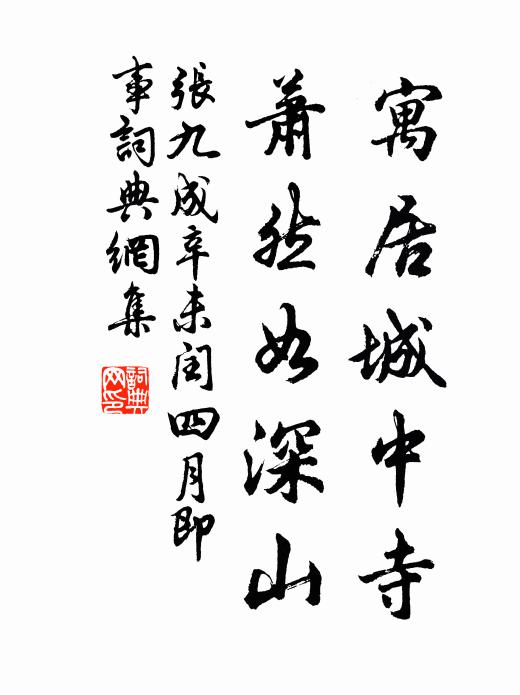 寓居城中寺
蕭然如深山
張九成辛未閏四月即
事詞典網集
詞典
网印